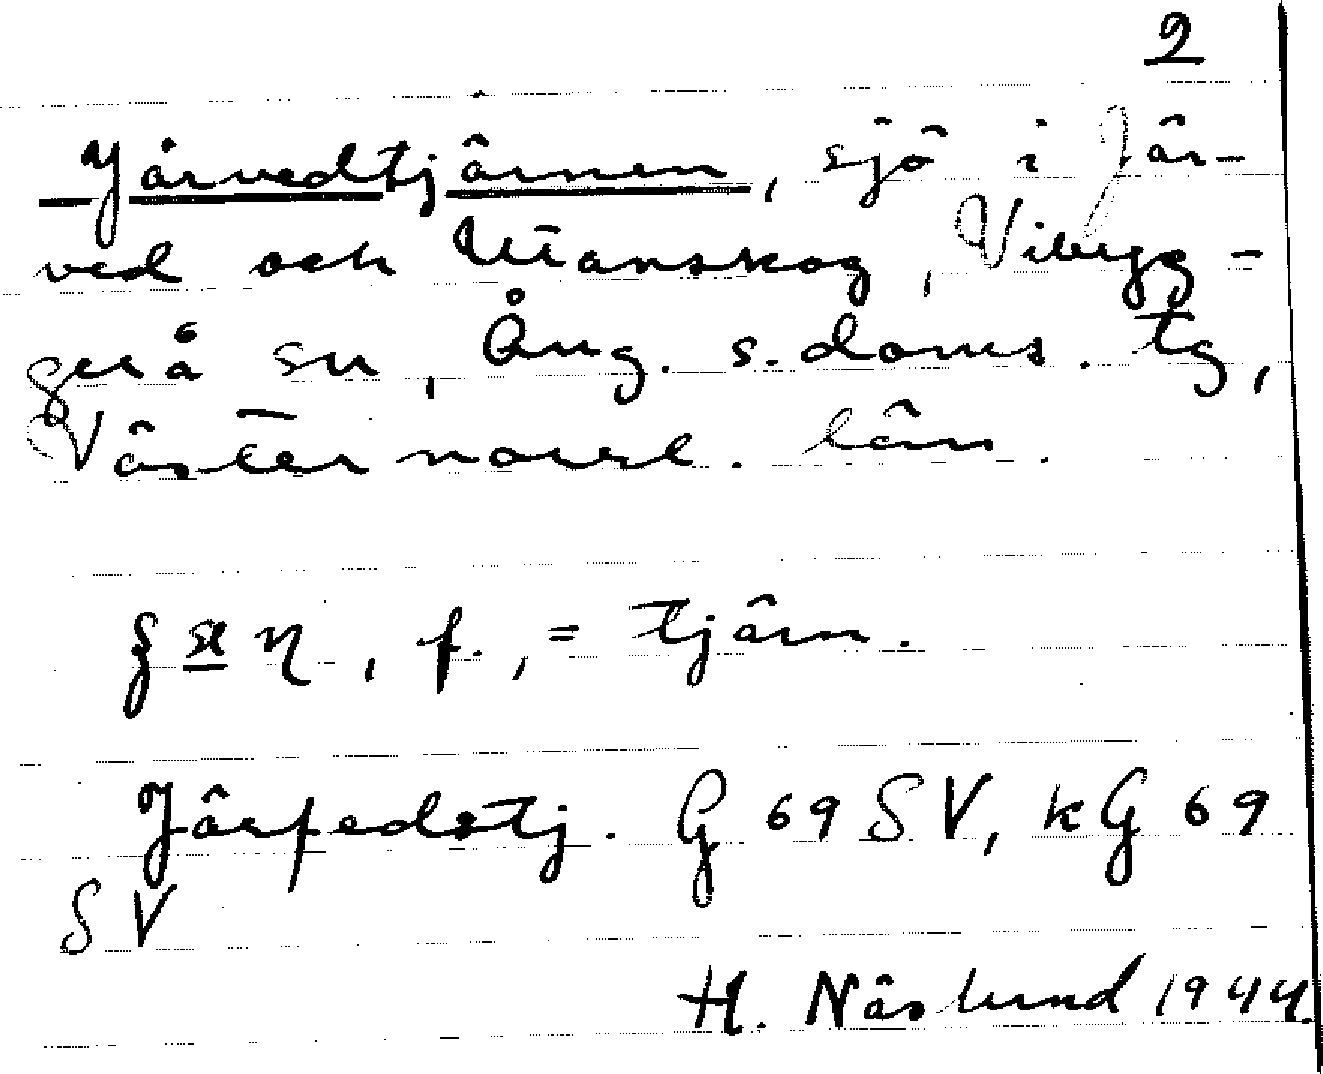 2
Järvedtjärnen, sjö i Jär-
ved och Utanskog, Vibygg-
gerå sn, Ång. s. doms. tg,
Västernorrl. län.
, f., = tjärn.
Järfedstj. G 69 SV, kG 69
SV
H. Näslund 1944.